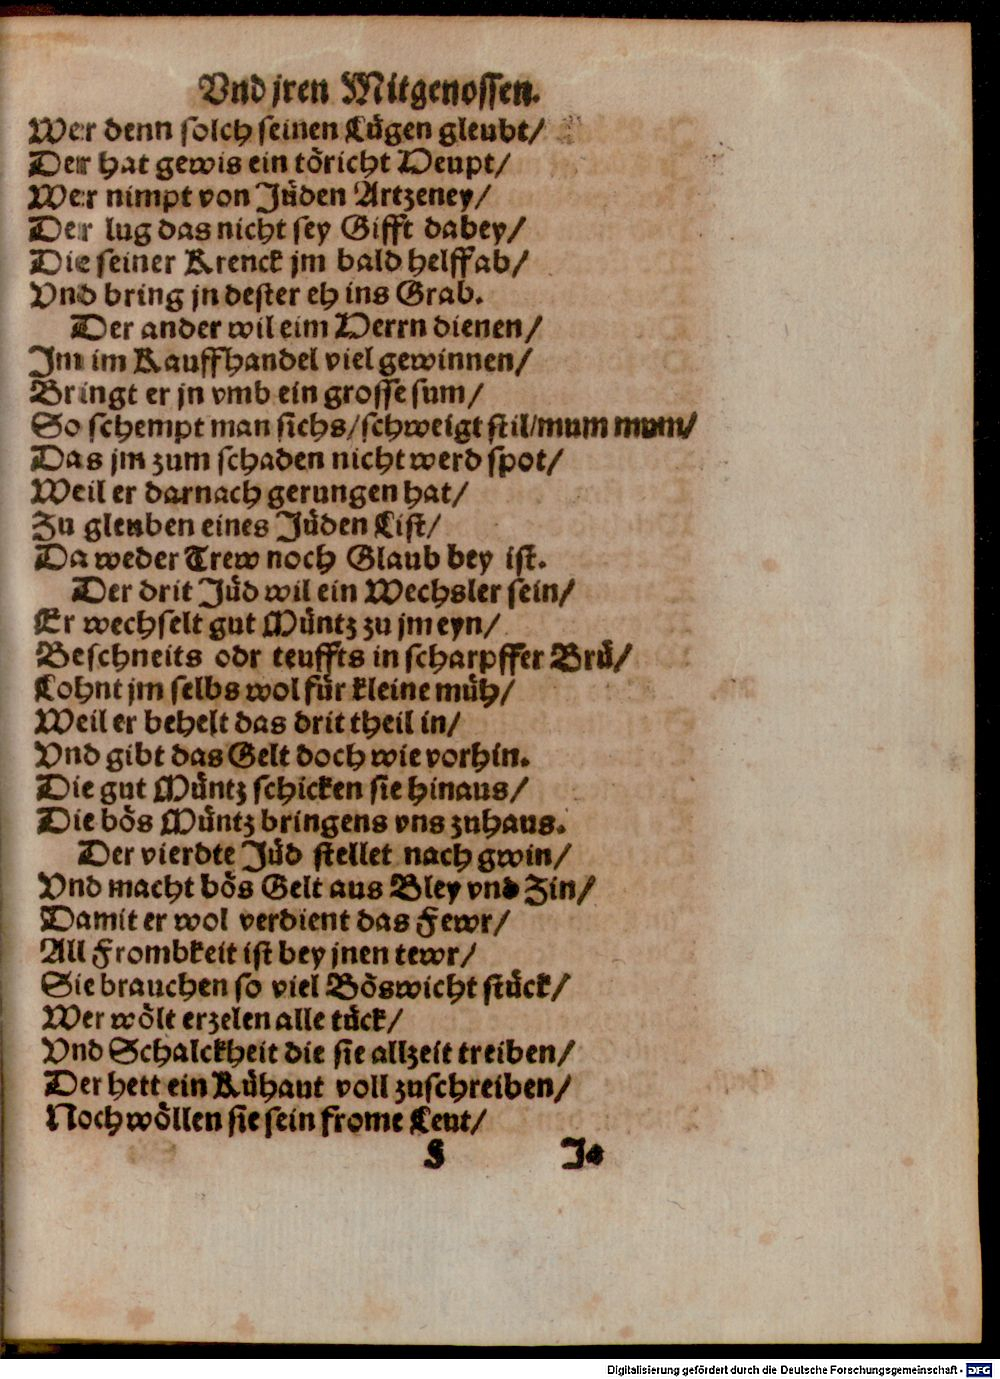 Vnd jren Mitgenossen.
Wer denn solch seinen Lügen gleubt/
Der hat gewis ein töricht Heupt/
Wer nimpt von Jüden Artzeney/
Der lug das nicht sey Gifft dabey/
Die seiner Krenck jm bald helff ab/
Vnd bring jn dester eh ins Grab.
Der ander wil eim Herrn dienen/
Jm im Kauffhandel viel gewinnen/
Bringt er jn vmb ein grosse sum/
So schempt man sichs/schweigt stil/mum mum/
Das jm zum schaden nicht werd spot/
Weil er darnach gerungen hat/
Zu gleuben eines Jüden List/
Da weder Trew noch Glaub bey ist.
Der drit Jüd wil ein Wechsler sein/
Er wechselt gut Müntz zu jm eyn/
Beschneits odr teuffts in scharpffer Brü/
Lohnt jm selbs wol für kleine müh/
Weil er behelt das drit theil in/
Vnd gibt das Gelt doch wie vorhin.
Die gut Müntz schicken sie hinaus/
Die bös Müntz bringens vns zuhaus.
Der vierdte Jüd stellet nach gwin/
Vnd macht bös Gelt aus Bley vnd Zin/
Damit er wol verdient das Fewr/
All Frombkeit ist bey jnen tewr/
Sie brauchen so viel Böswicht stück/
Wer wölt erzelen alle tück/
Vnd Schalckheit die sie allzeit treiben/
Der hett ein Kühaut voll zuschreiben/
Noch wöllen sie sein frome Leut/
Je
Digitalisierung gefördert durch die Deutsche Forschungsgemeinschaft - DFG